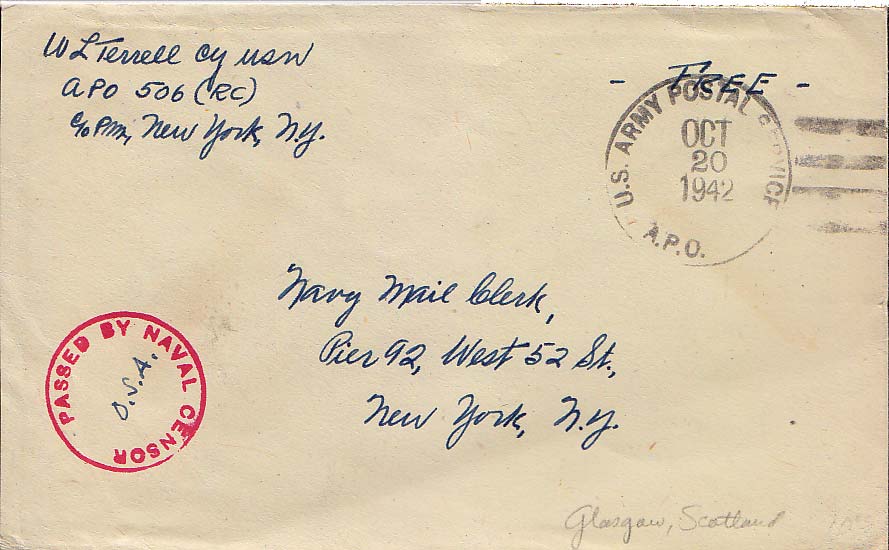 W L Terrell CY USN
APO 506 (RC)
c/o P.M., New York, N.Y.
- FREE -
U.S. ARMY POSTAL SERVICE
OCT
20
1942
A.P.O.
Navy Mail Clerk,
Pier 92, West 52 St.,
New York, N.Y.
PASSED BY NAVAL CENSOR
Glasgow, Scotland